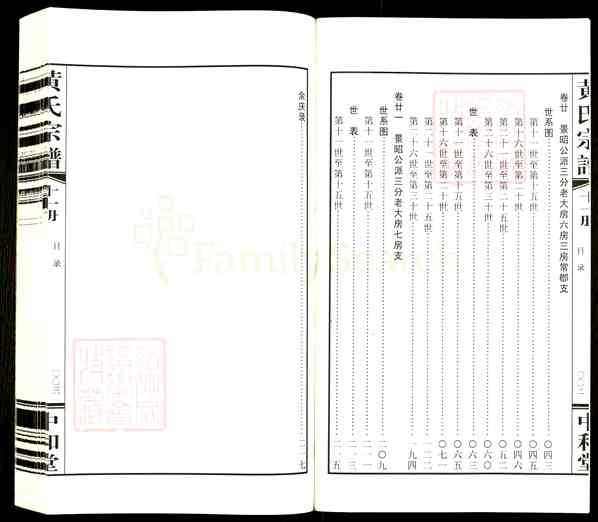 黄氏宗谱
十一册
目录
一〇〇二
中和堂
卷廿 景昭公派三分老大房六房三房常郡支
世系图
第十一世至第十五世 一〇四三
第十六世至第二十世 一〇四五
第二十一世至第二十五世 一〇四六
第二十六世至第三十世 一〇五二
世表 一〇六〇
第十一世至第十五世 一〇六三
第十六世至第二十世 一〇六五
第二十一世至第二十五世 一〇七一
第二十六世至第三十世
卷廿一 景昭公派三分老大房七房支
世系图 一二〇九
第十一世至第十五世 一二一一
世表 一二一三
第十一世至第十五世 一二一五
余庆录 一二一七
黄氏宗谱
十一册
目录
一〇〇三
中和堂
FamilySearch